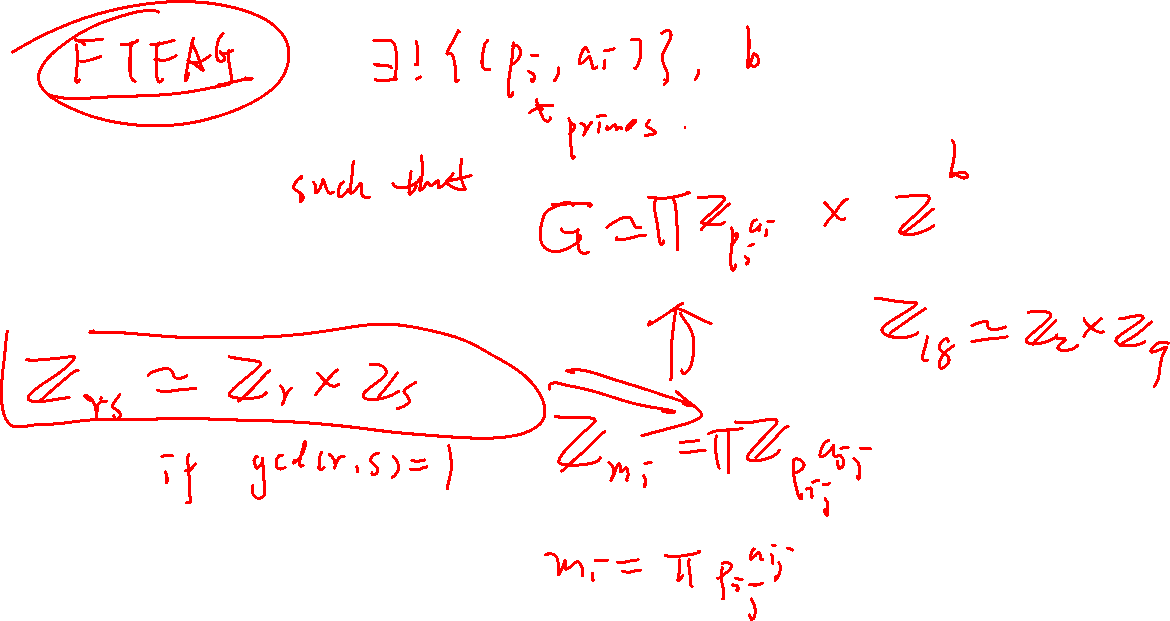 FTFAG ∃! {(p_i, a_i)}, b
↑ primes.
such that
G ≃ ∏ ℤ_{p_i^{a_i}} × ℤ^b
ℤ_{18} ≃ ℤ_2 × ℤ_9
ℤ_{rs} ≃ ℤ_r × ℤ_s
if gcd(r,s)=1
ℤ_{m_i} = ∏ ℤ_{p_{i_j}^{a_{ij}}}
m_i = ∏ p_{i_j}^{a_{ij}}